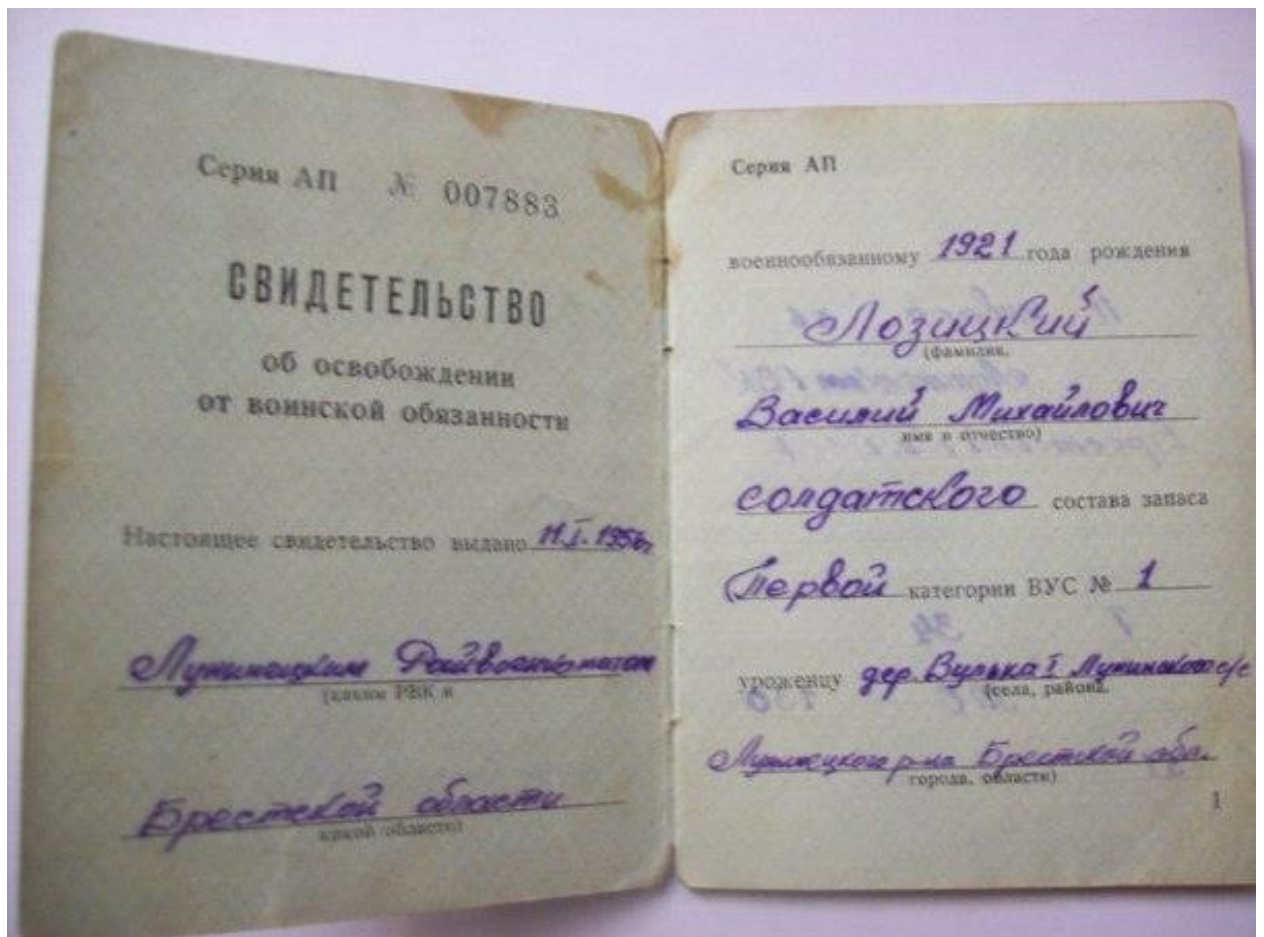 Серия АП № 007883
СВИДЕТЕЛЬСТВО
об освобождении
от воинской обязанности
Настоящее свидетельство выдано 11.I.1956г
Лунинецким Райвоенкоматом
(каким РВК и
Брестской области
какой области)
Серия АП
военнообязанному 1921 года рождения
Лозицкий
(фамилия,
Василий Михайлович
имя и отчество)
солдатского состава запаса
Первой категории ВУС № 1
уроженцу дер. Вулька I Лунинского с/с
(села, района,
Лунинецкого р-на Брестской обл.
города, области)
1